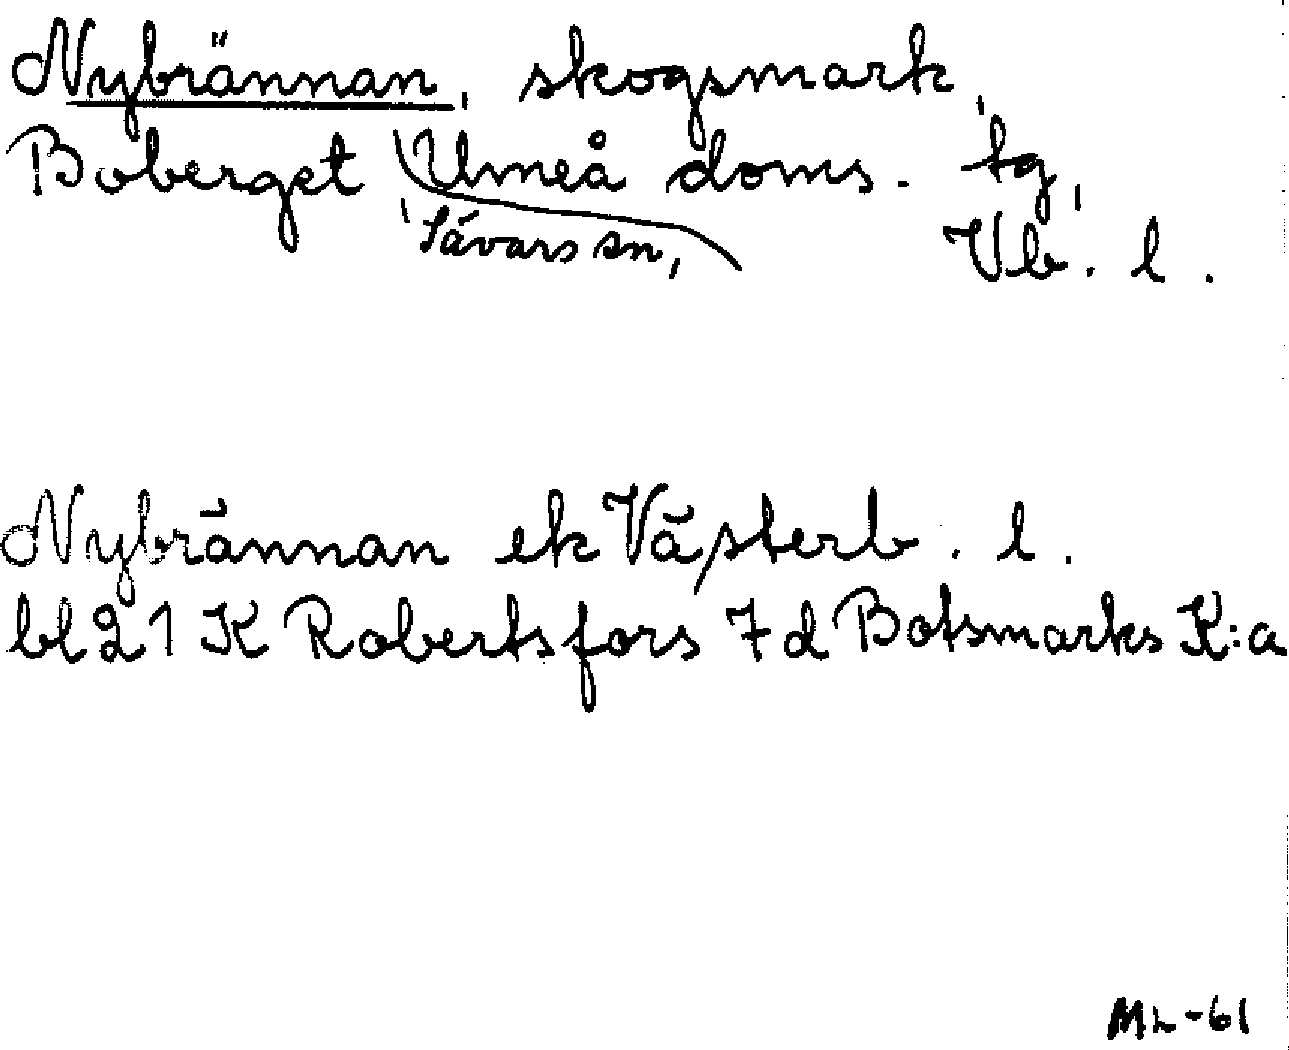 Nybrännan, skogsmark,
Boberget, Umeå doms. tg,
Sävars sn,
Vb. l.
Nybrännan ek Västerb. l.
bl 21 K Robertsfors 7d Botsmarks K:a
ML-61